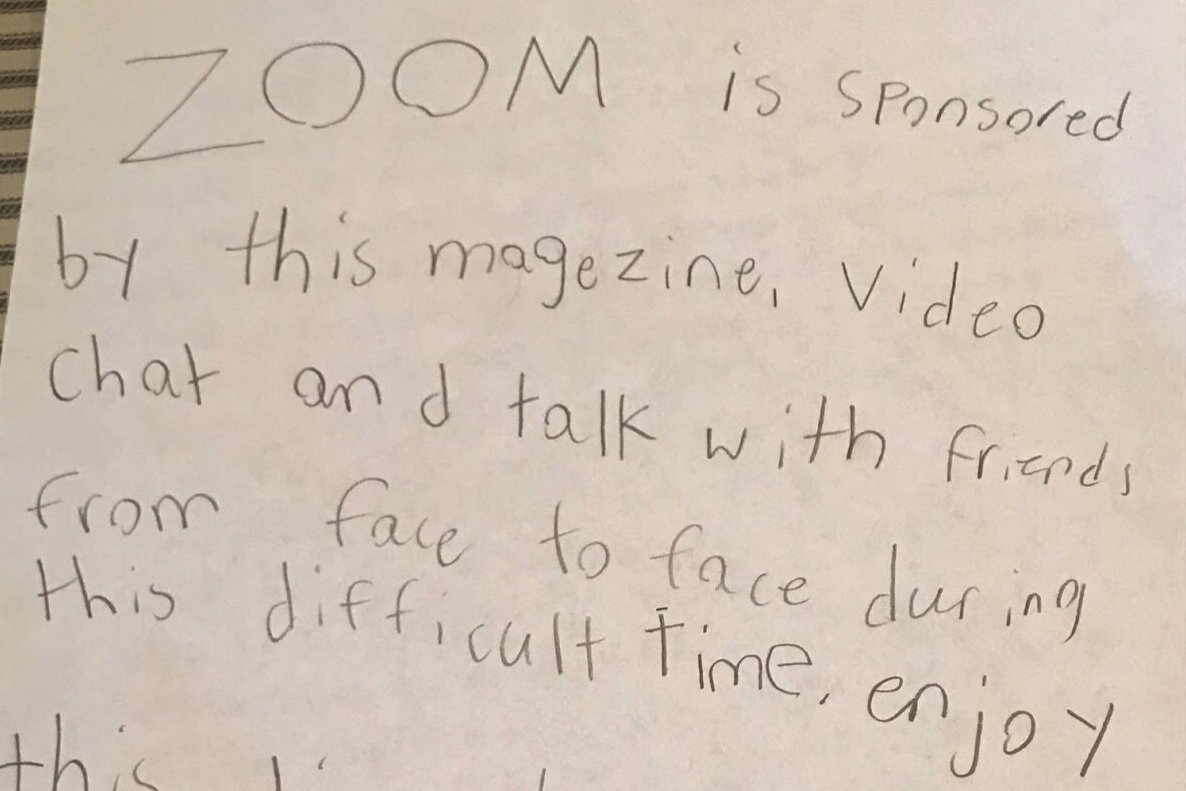 ZOOM is sponsored
by this magezine, Video
Chat and talk with friends
from face to face during
this difficult Time, enjoy
this